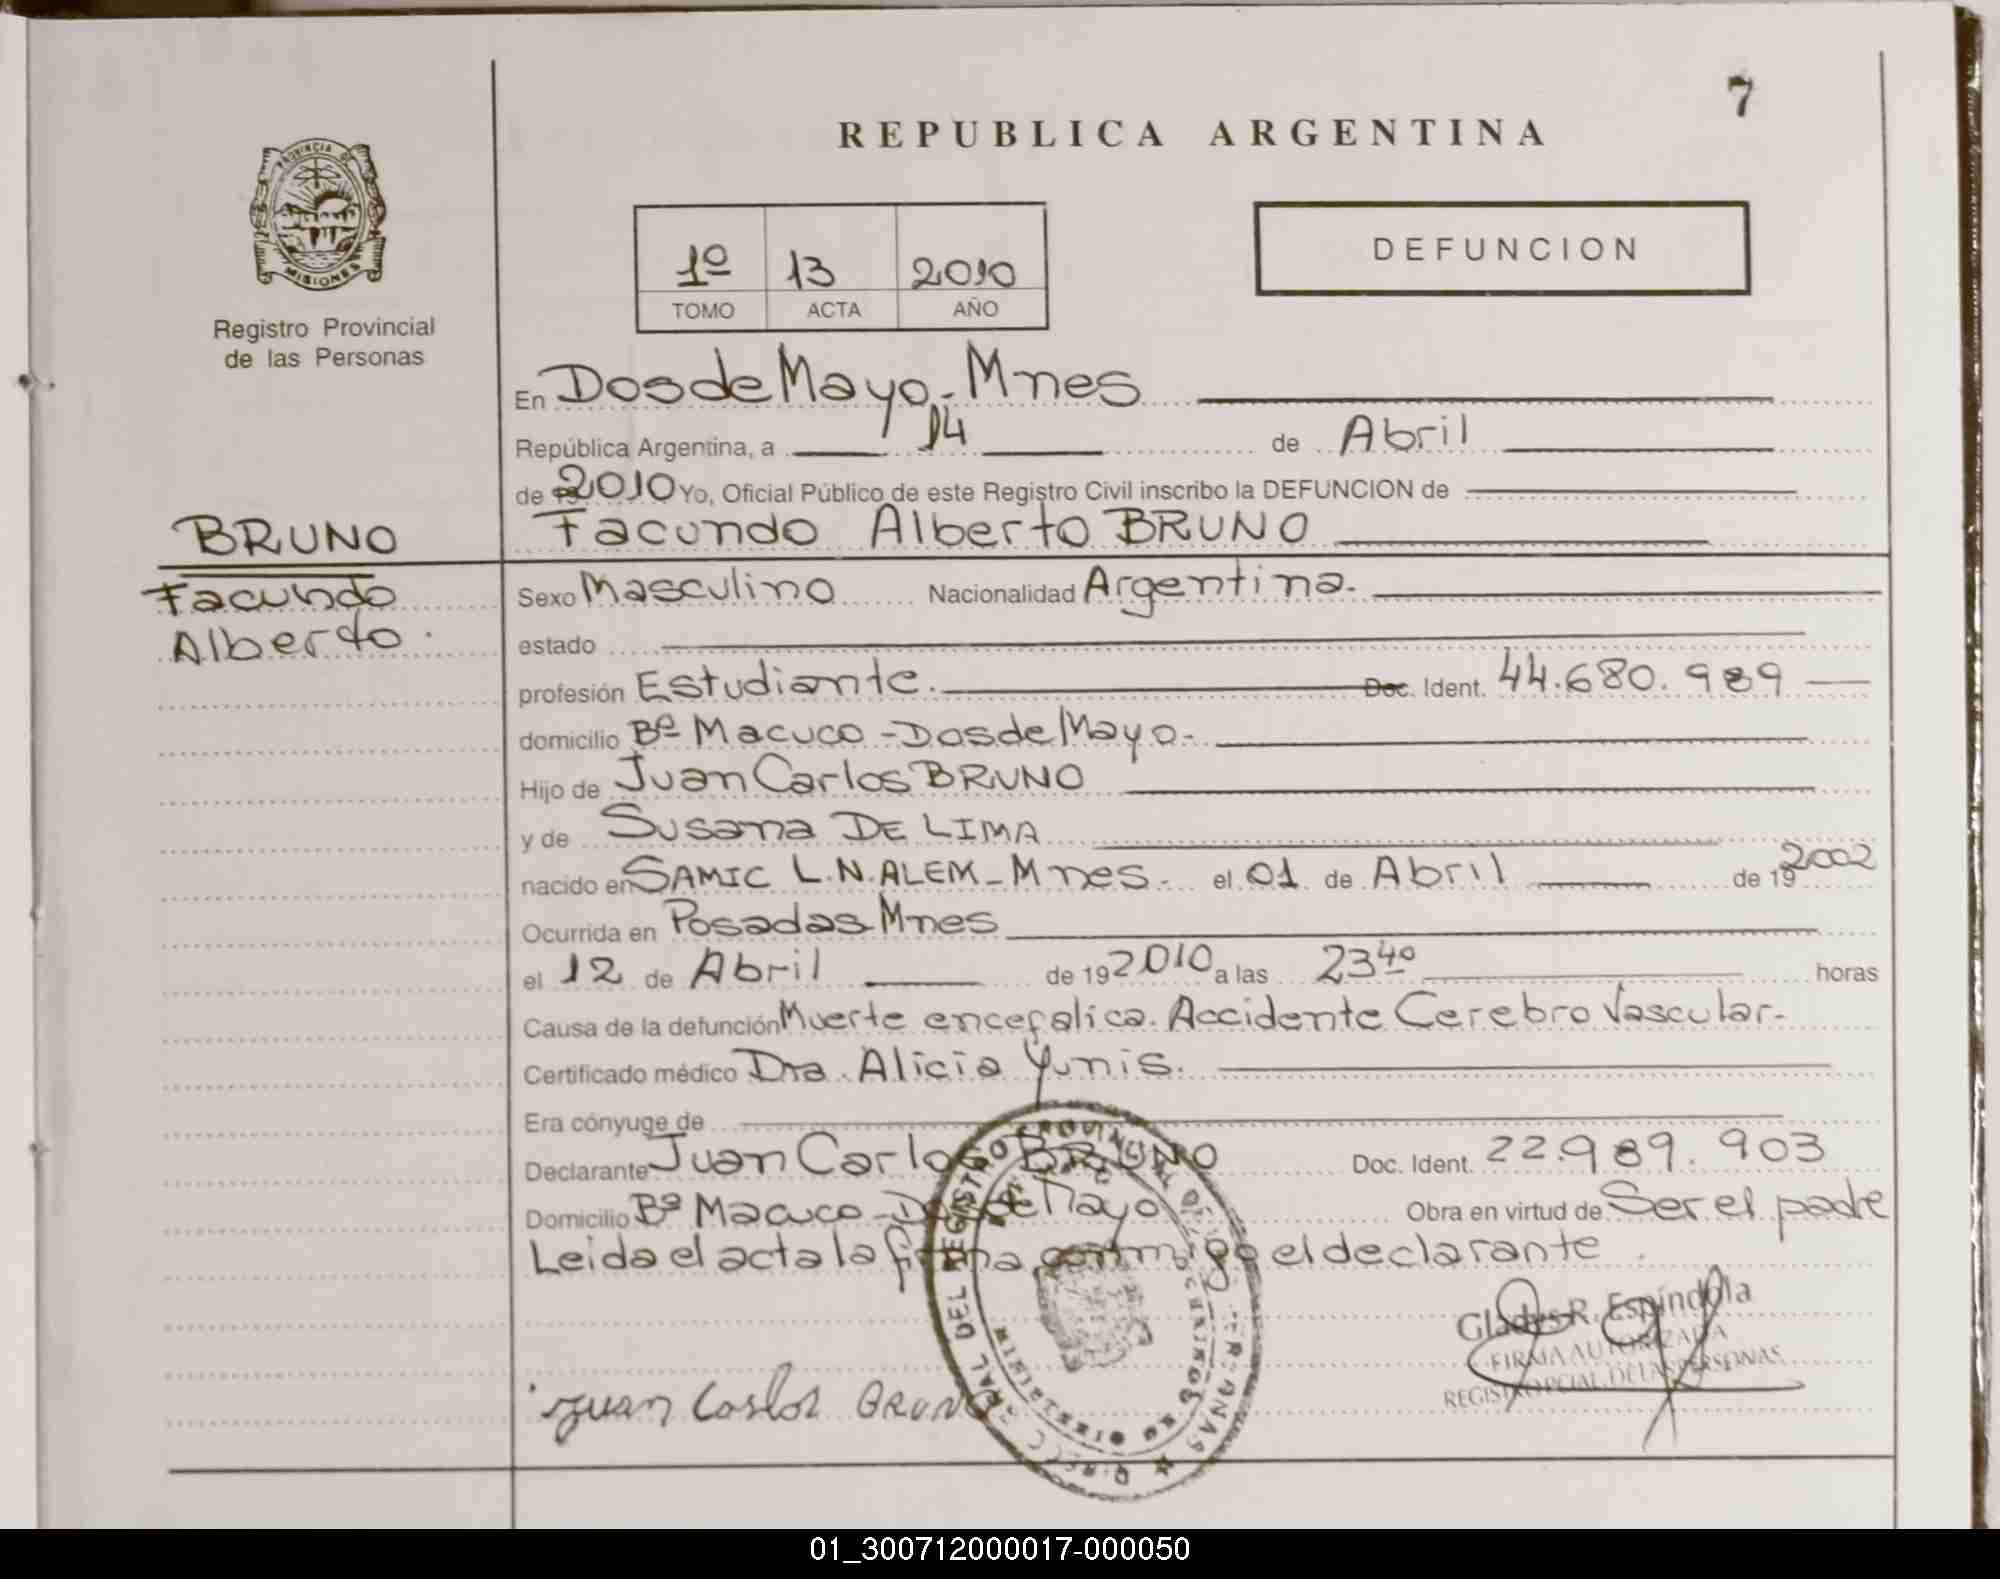 7
REPUBLICA ARGENTINA
PROVINCIA DE
MISIONES
Registro Provincial
de las Personas
1º 13 2010
TOMO ACTA AÑO
DEFUNCION
En Dos de Mayo - Mnes
República Argentina, a 14 de Abril
de 2010 Yo, Oficial Público de este Registro Civil inscribo la DEFUNCION de
Facundo Alberto BRUNO
BRUNO
Facundo
Alberto.
Sexo Masculino Nacionalidad Argentina.
estado
profesión Estudiante. Doc. Ident. 44.680.989
domicilio Bº Macuco - Dos de Mayo.
Hijo de Juan Carlos BRUNO
y de Susana DE LIMA
nacido en SAMIC L.N. ALEM - Mnes. el 01 de Abril de 19 2002
Ocurrida en Posadas Mnes
el 12 de Abril de 19 2010 a las 23 40 horas
Causa de la defunción Muerte encefalica. Accidente Cerebro Vascular.
Certificado médico Dra. Alicia Yunis.
Era cónyuge de
Declarante Juan Carlos BRUNO Doc. Ident. 22.989.903
Domicilio Bº Macuco - Dos de Mayo Obra en virtud de Ser el padre
Leida el acta la firma conmigo el declarante.
Gladys R. Espíndola
FIRMA AUTORIZADA
REGISTRO PCIAL. DE LAS PERSONAS
Juan Carlos BRUNO
01_300712000017-000050